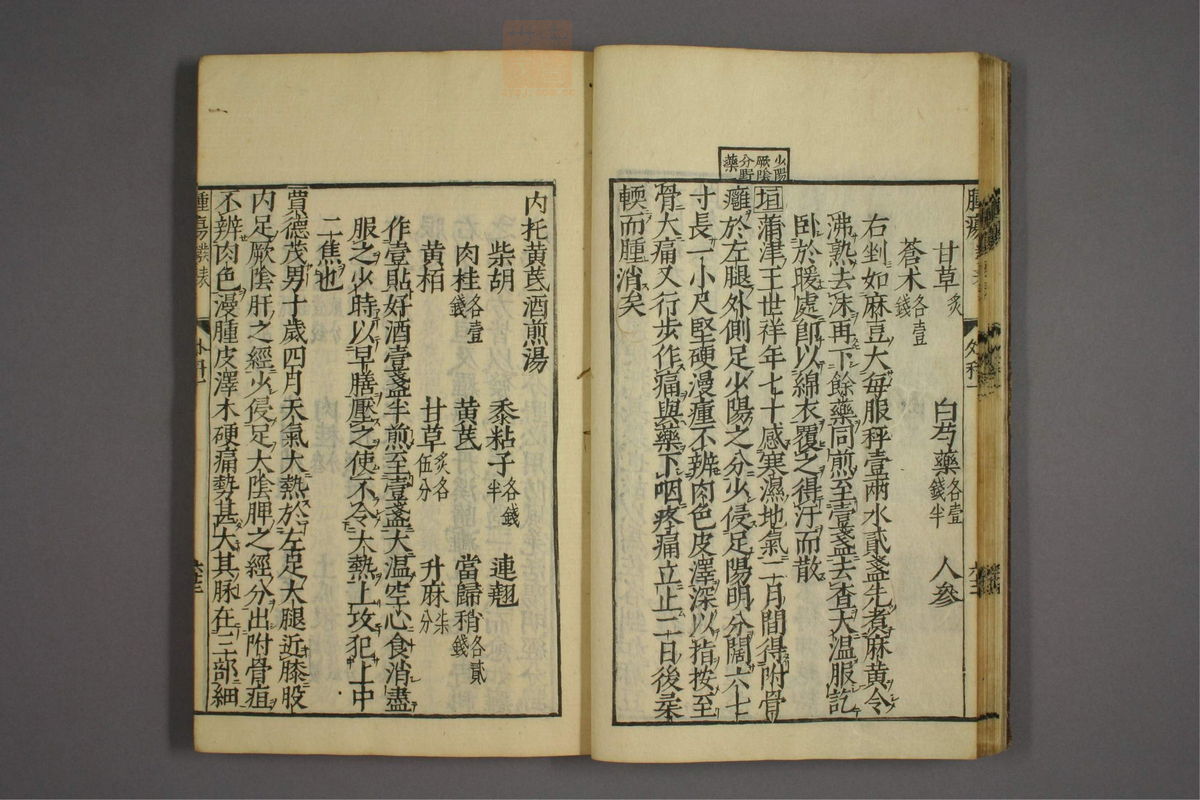 甘草炙　白芍藥各壹錢半　人參
蒼术各壹錢
右剉如麻豆大每服秤壹兩水貳盞先煮麻黃令
沸熟去沫再下餘藥同煎至壹盞去查大温服訖
卧於暖處卽以綿衣覆之得汗而散
少陽厥陰分野藥
垣蒲津王世祥年七十感寒濕地氣十月間得附骨
癰於左腿外側足少陽之分少侵足陽明分闊六七
寸長一小尺堅硬漫瘇不辨肉色皮澤深以指按至
骨大痛又行步作痛與藥下咽疼痛立止二日後柔
輭而腫消矣
内托黃芪酒煎湯
柴胡　黍粘子各錢半　連翹
肉桂各壹錢　黃芪　當歸稍各貳錢
黃栢　甘草炙各伍分　升麻柒分
作壹貼好酒壹盞半煎至壹盞大温空心食消盡
服之少時以早膳壓之使不令大熱上攻犯上中
二焦也
賈德茂男十歲四月天氣大熱於左足大腿近膝股
内足厥陰肝之經少侵足大陰脾之經分出附骨疽
不辨肉色漫腫皮澤木硬痛勢甚大其脉在三部細